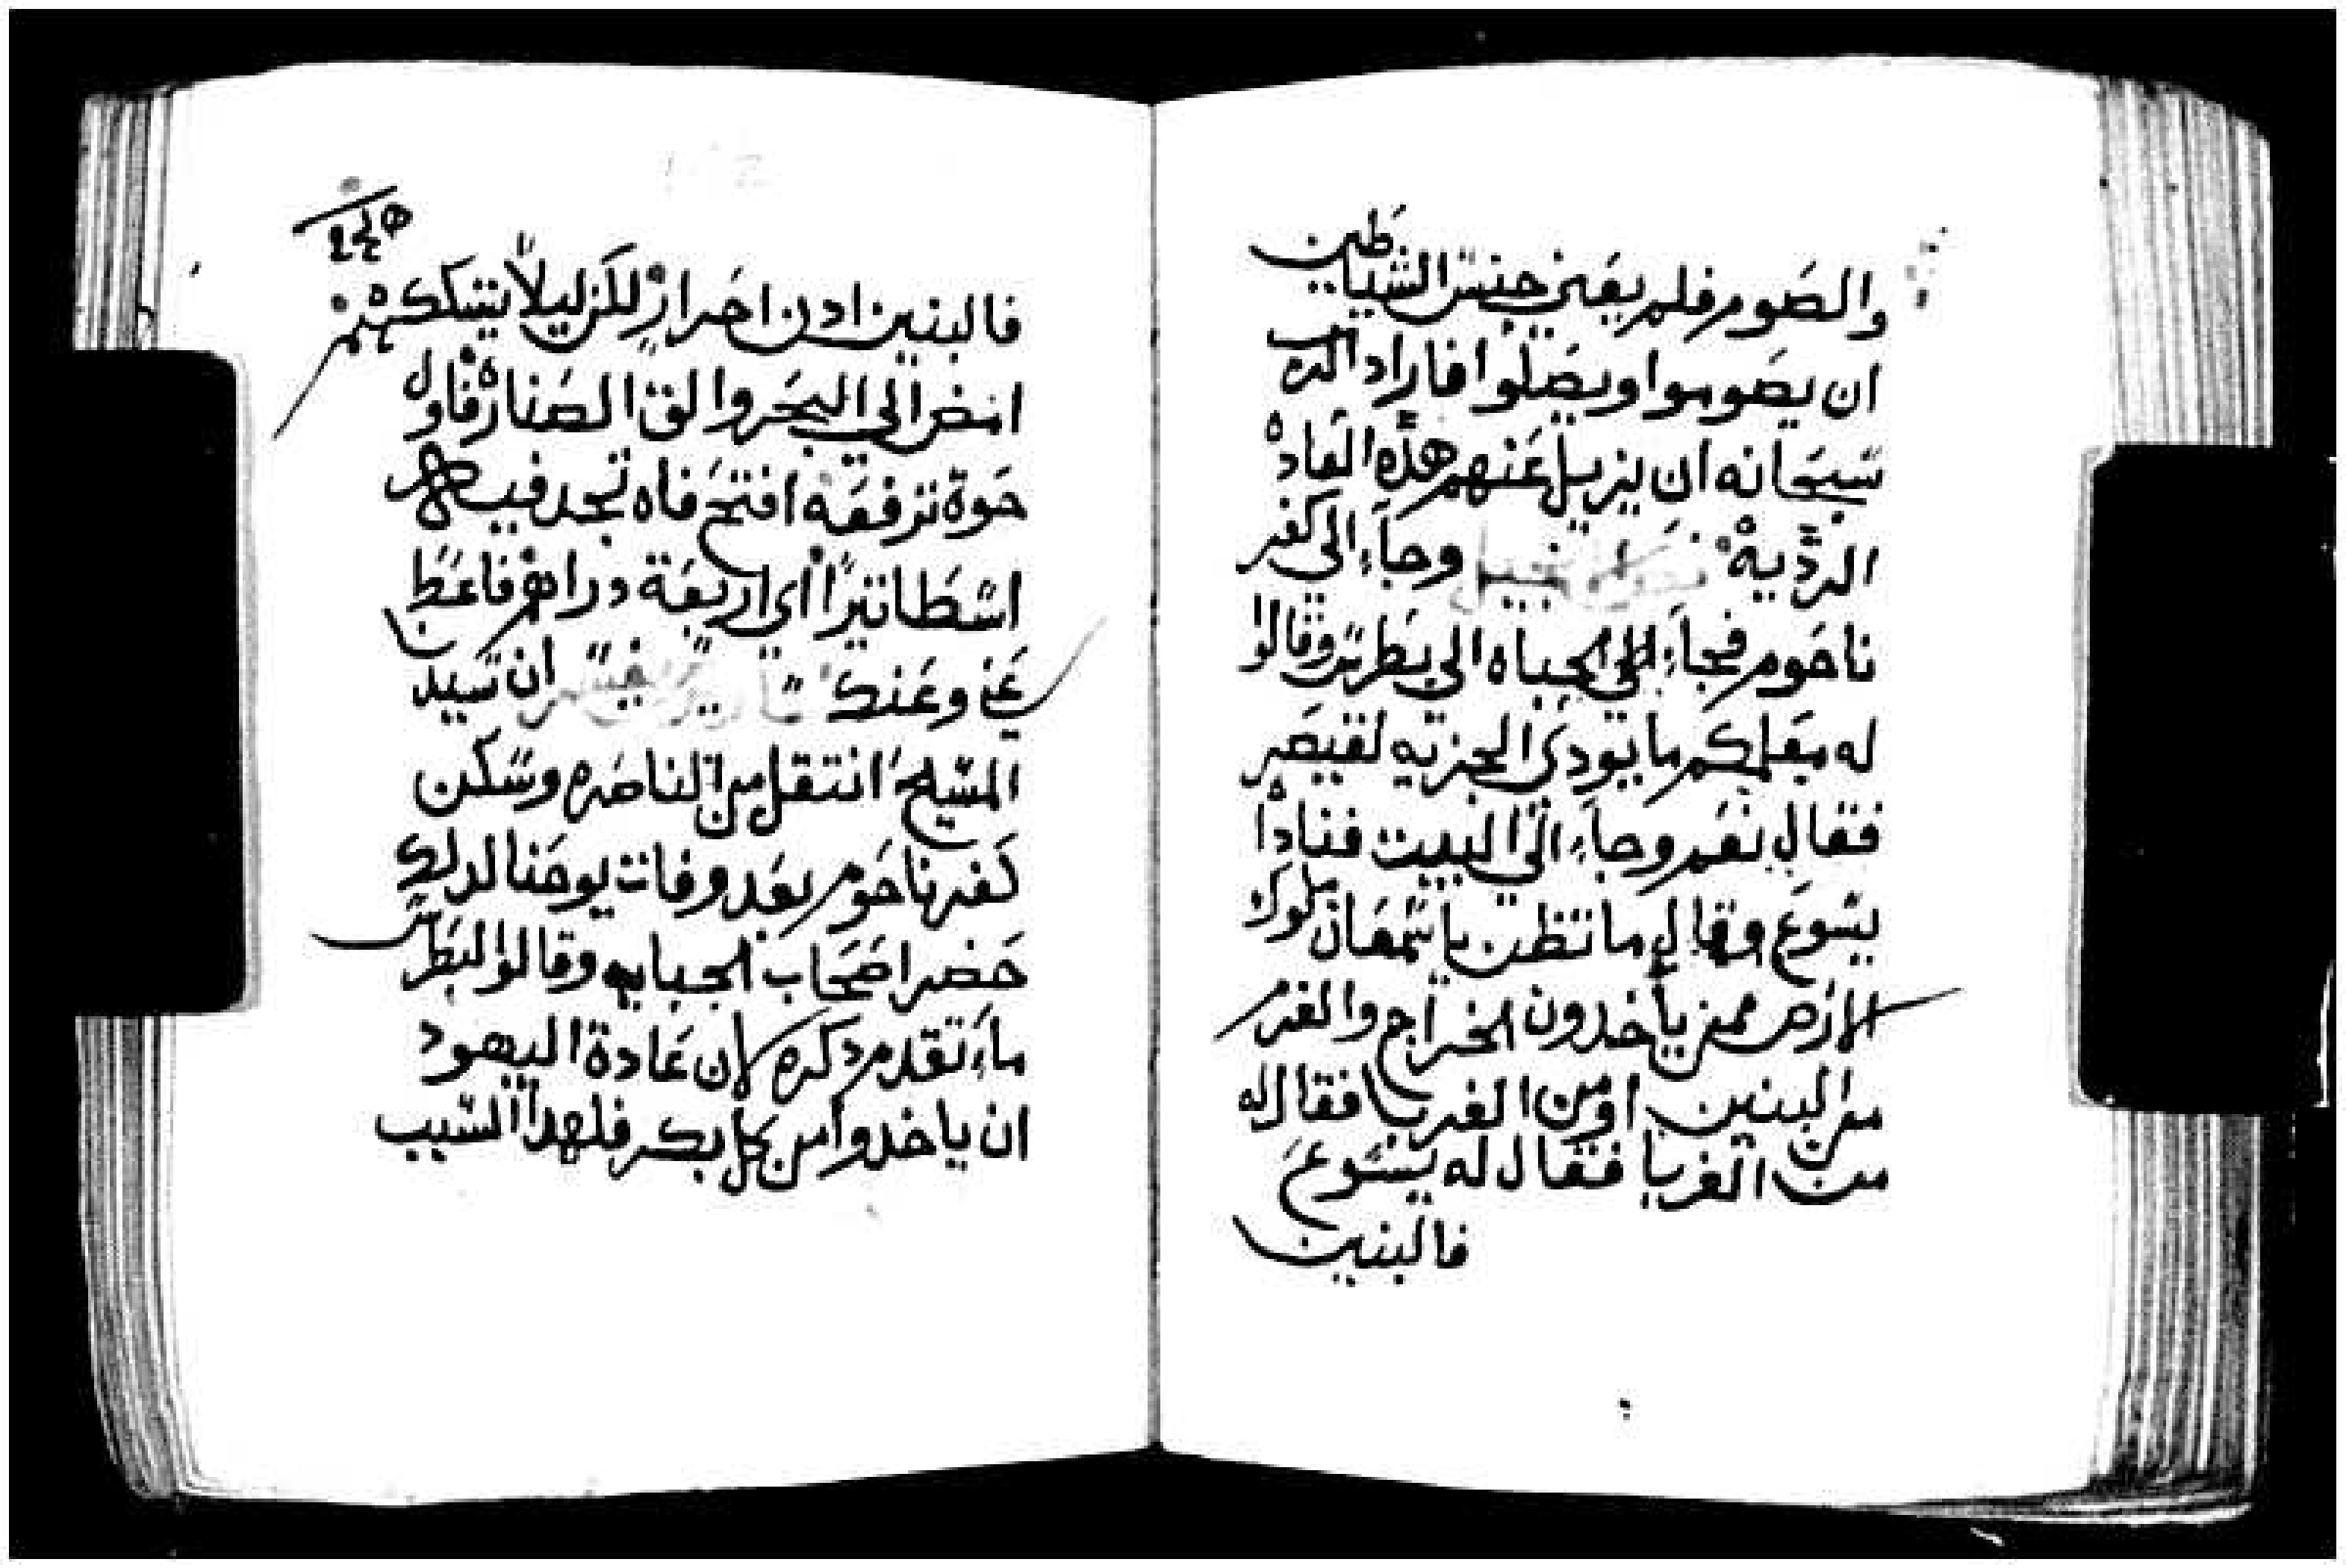 والصوم فلم يعني جنس الشياطين
ان يصوموا ويصلوا فاراد الرب
سبحانه ان يزيل عنهم هذه العاده
الرديه وجاء الي كفر
ناحوم فجاء الجباه الي بطرس وقالوا
له معلمكم ما يودي الجزيه لقيصر
فقال نعم وجاء الي البيت فناداه
يسوع وقال ما تظن يا سمعان ملوك
الارض ممن ياخدون الخراج والغرم
من البنين او من الغربا فقال له
من الغربا فقال له يسوع
فالبنين
فالبنين ادن احرار لكن ليلا نشككهم
امض الي البحر والق الصناره فاول
حوة ترفعه افتح فاه تجد فيه
اسطاتيرا اي اربعة دراهم فاعط
عني وعنك ان سيد
المسيح انتقل من الناصره وسكن
كفرناحوم بعد وفات يوحنا لدلك
حضر اصحاب الجبايه وقالوا لبطرس
ما تقدم دكره لان عادة اليهود
ان ياخدوا من كل بكر فلهدا السبب